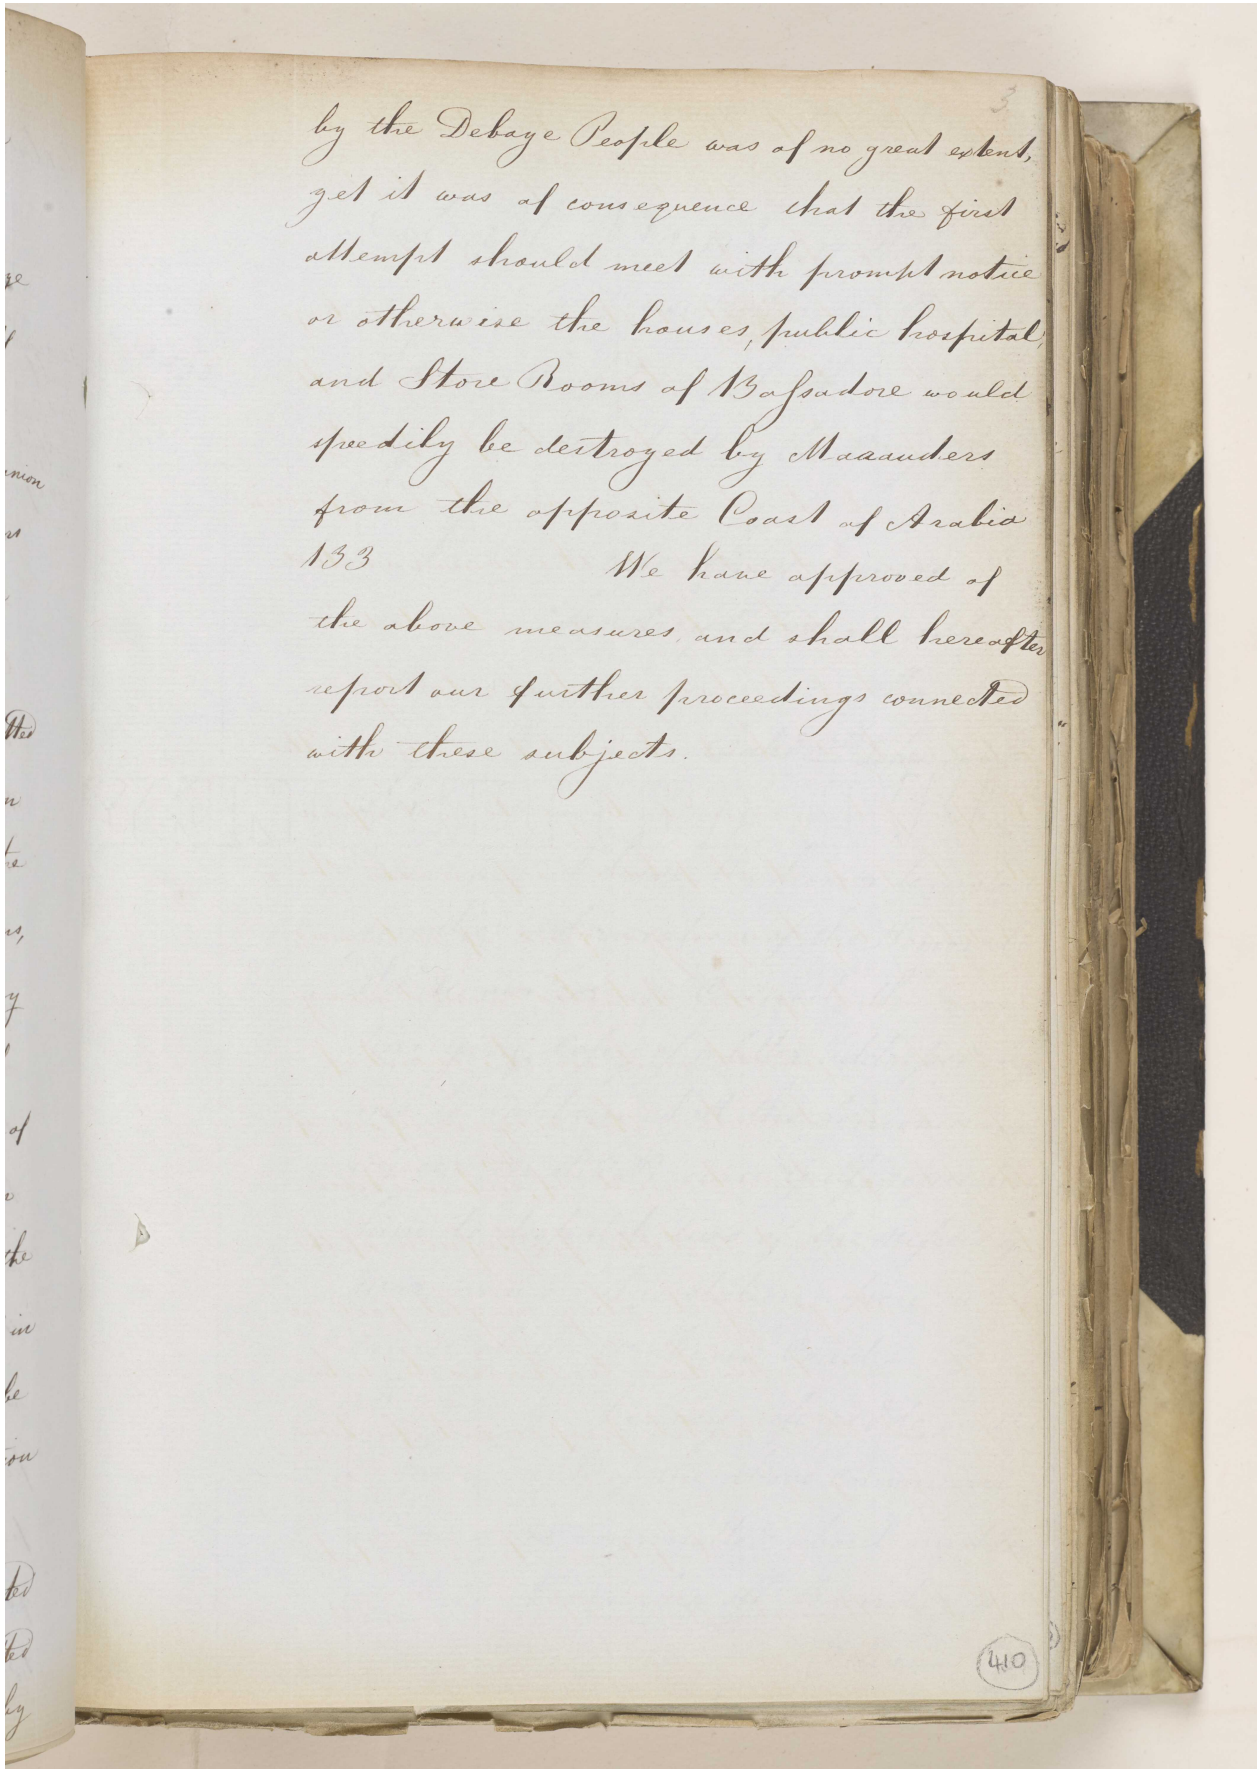 3
by the Debaye People was of no great extent,
yet it was of consequence that the first
attempt should meet with prompt notice
or otherwise the houses, public hospital,
and Store Rooms of Bassadore would
speedily be destroyed by Maaauders
from the opposite Coast of Arabia
133 We have approved of
the above measures and shall hereafter
report our further proceedings connected
with these subjects.
410